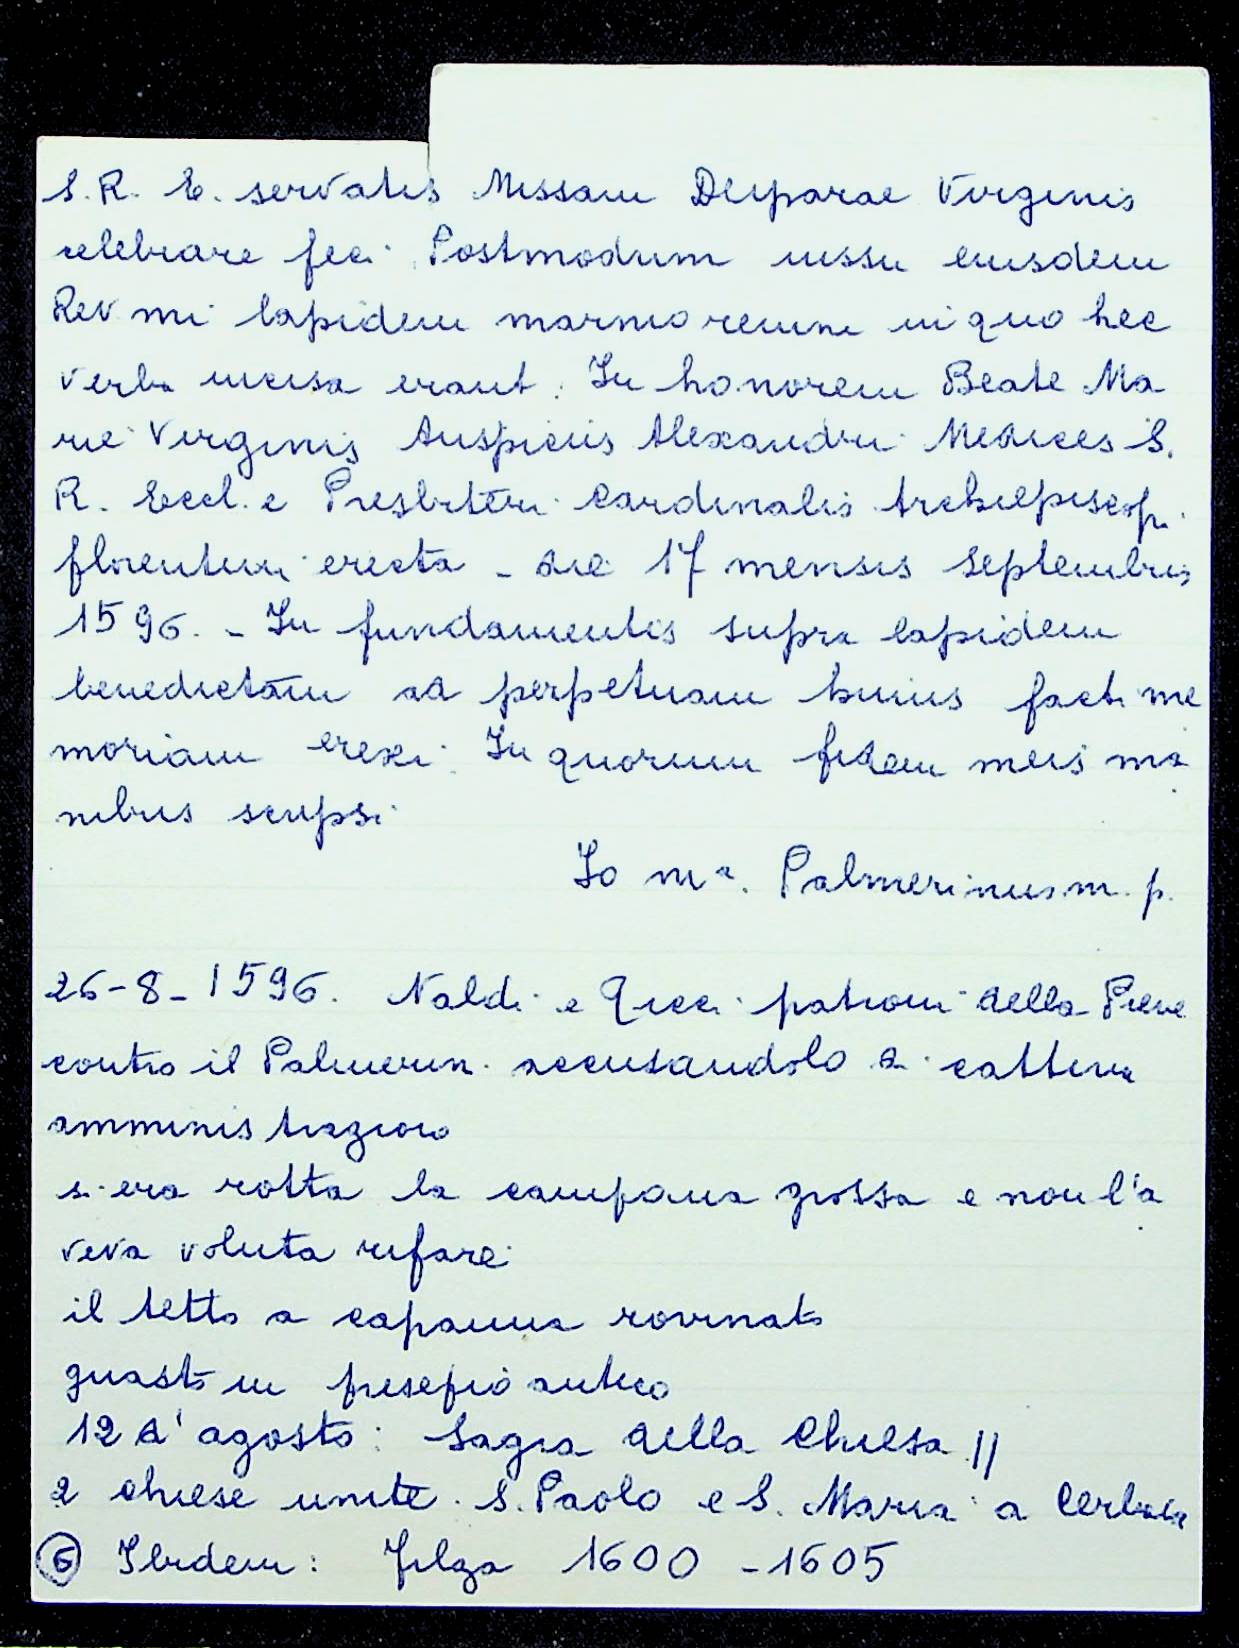 S. R. E. servatis Missam Deiparae Virginis
celebrare feci. Postmodum iussu eiusdem
Rev mi lapidem marmoreum in quo hec
verba incisa erant. In honorem Beate Ma
rie Virginis Auspiciis Alexandri Medices S.
R. Eccl. e Presbiteri Cardinalis Archiepiscopi
florentini erecta - die 17 mensis Septembris
1596. - In fundamentis supra lapidem
benedictam ad perpetuam huius facti me
moriam erexi. In quorum fidem meis ma
nibus scripsi
Jo mª. Palmerinus m. p.
26-8-1596. Naldi e Ricci patroni della Pieve
contro il Palmerin. accusandolo di cattiva
amministrazione
si era rotta la campana grossa e non l'a
veva voluta rifare
il tetto a capanna rovinato
guasto un presepio antico
12 d'agosto: Sagra della Chiesa !!
2 chiese unite. S. Paolo e S. Maria a Cerbaia
6 Ibidem: Filza 1600 - 1605